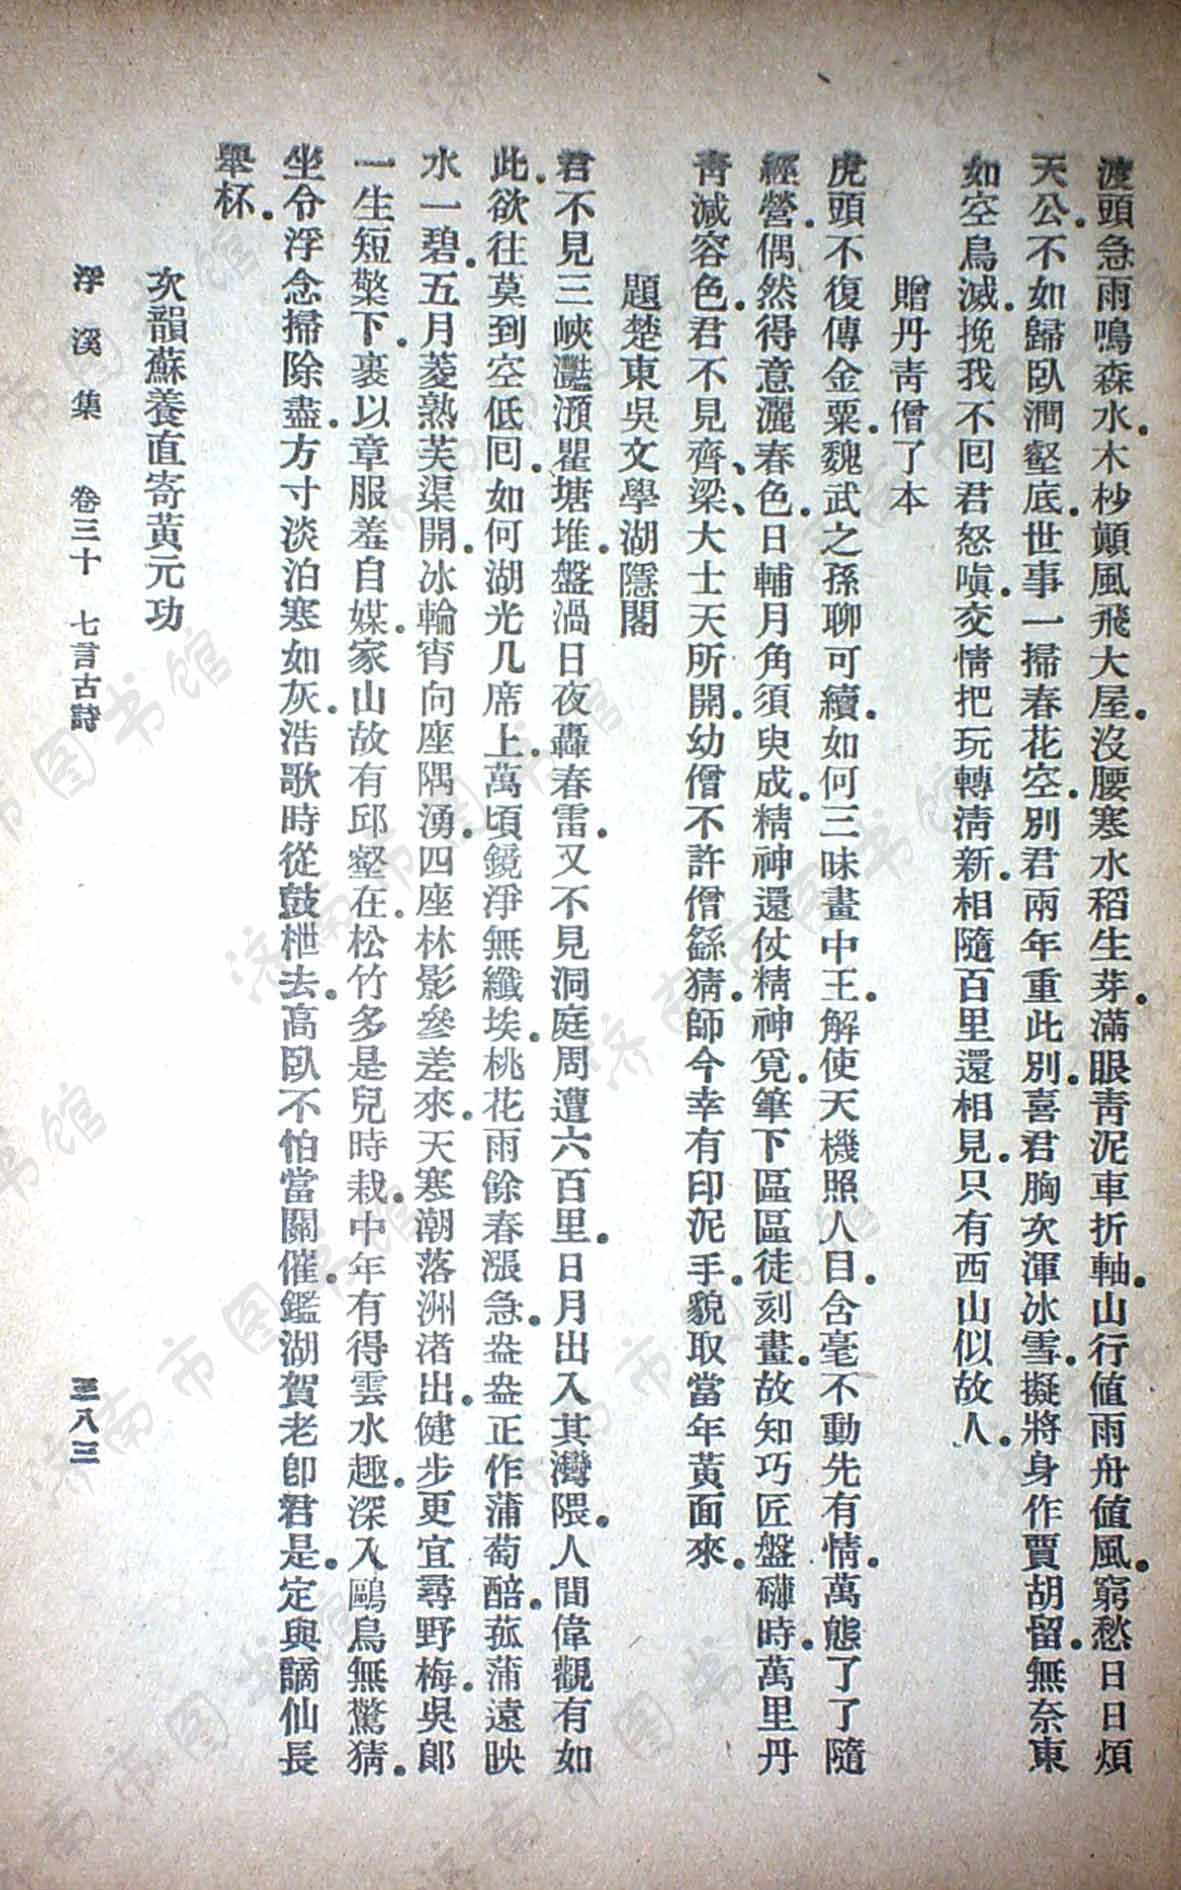 渡頭急雨鳴森水．木杪顚風飛大屋．沒腰寒水稻生芽．滿眼靑泥車折軸．山行値雨舟値風．窮愁日日煩
天公．不如歸臥澗壑底．世事一掃春花空．別君兩年重此別．喜君胸次渾冰雪．擬將身作賈胡留．無奈東
如空鳥滅．挽我不囘君怒嗔．交情把玩轉淸新．相隨百里還相見．只有西山似故人．
贈丹靑僧了本
虎頭不復傳金粟．魏武之孫聊可續．如何三昧畫中王．解使天機照人目．含毫不動先有情．萬態了了隨
經營．偶然得意灑春色．日輔月角須臾成．精神還仗精神覓．筆下區區徒刻畫．故知巧匠盤礴時．萬里丹
靑減容色．君不見齊、梁、大士天所開．幼僧不許僧繇猜．師今幸有印泥手．貌取當年黃面來．
題楚東吳文學湖隱閣
君不見三峽灩澦瞿塘堆．盤渦日夜轟春雷．又不見洞庭周遭六百里．日月出入其灣隈．人間偉觀有如
此．欲往莫到空低囘．如何湖光几席上．萬頃鏡淨無纖埃．桃花雨餘春漲急．盎盎正作蒲萄醅．菰蒲遠映
水一碧．五月菱熟芙渠開．冰輪宵向座隅湧．四座林影參差來．天寒潮落洲渚出．健步更宜尋野梅．吳郞
一生短檠下．裹以章服羞自媒．家山故有邱壑在．松竹多是兒時栽．中年有得雲水趣．深入鷗鳥無驚猜．
坐令浮念掃除盡．方寸淡泊寒如灰．浩歌時從鼓枻去．高臥不怕當關催．鑑湖賀老卽君是．定與謫仙長
舉杯．
次韻蘇養直寄黃元功
浮溪集 卷三十 七言古詩 三八三
济南市图书馆